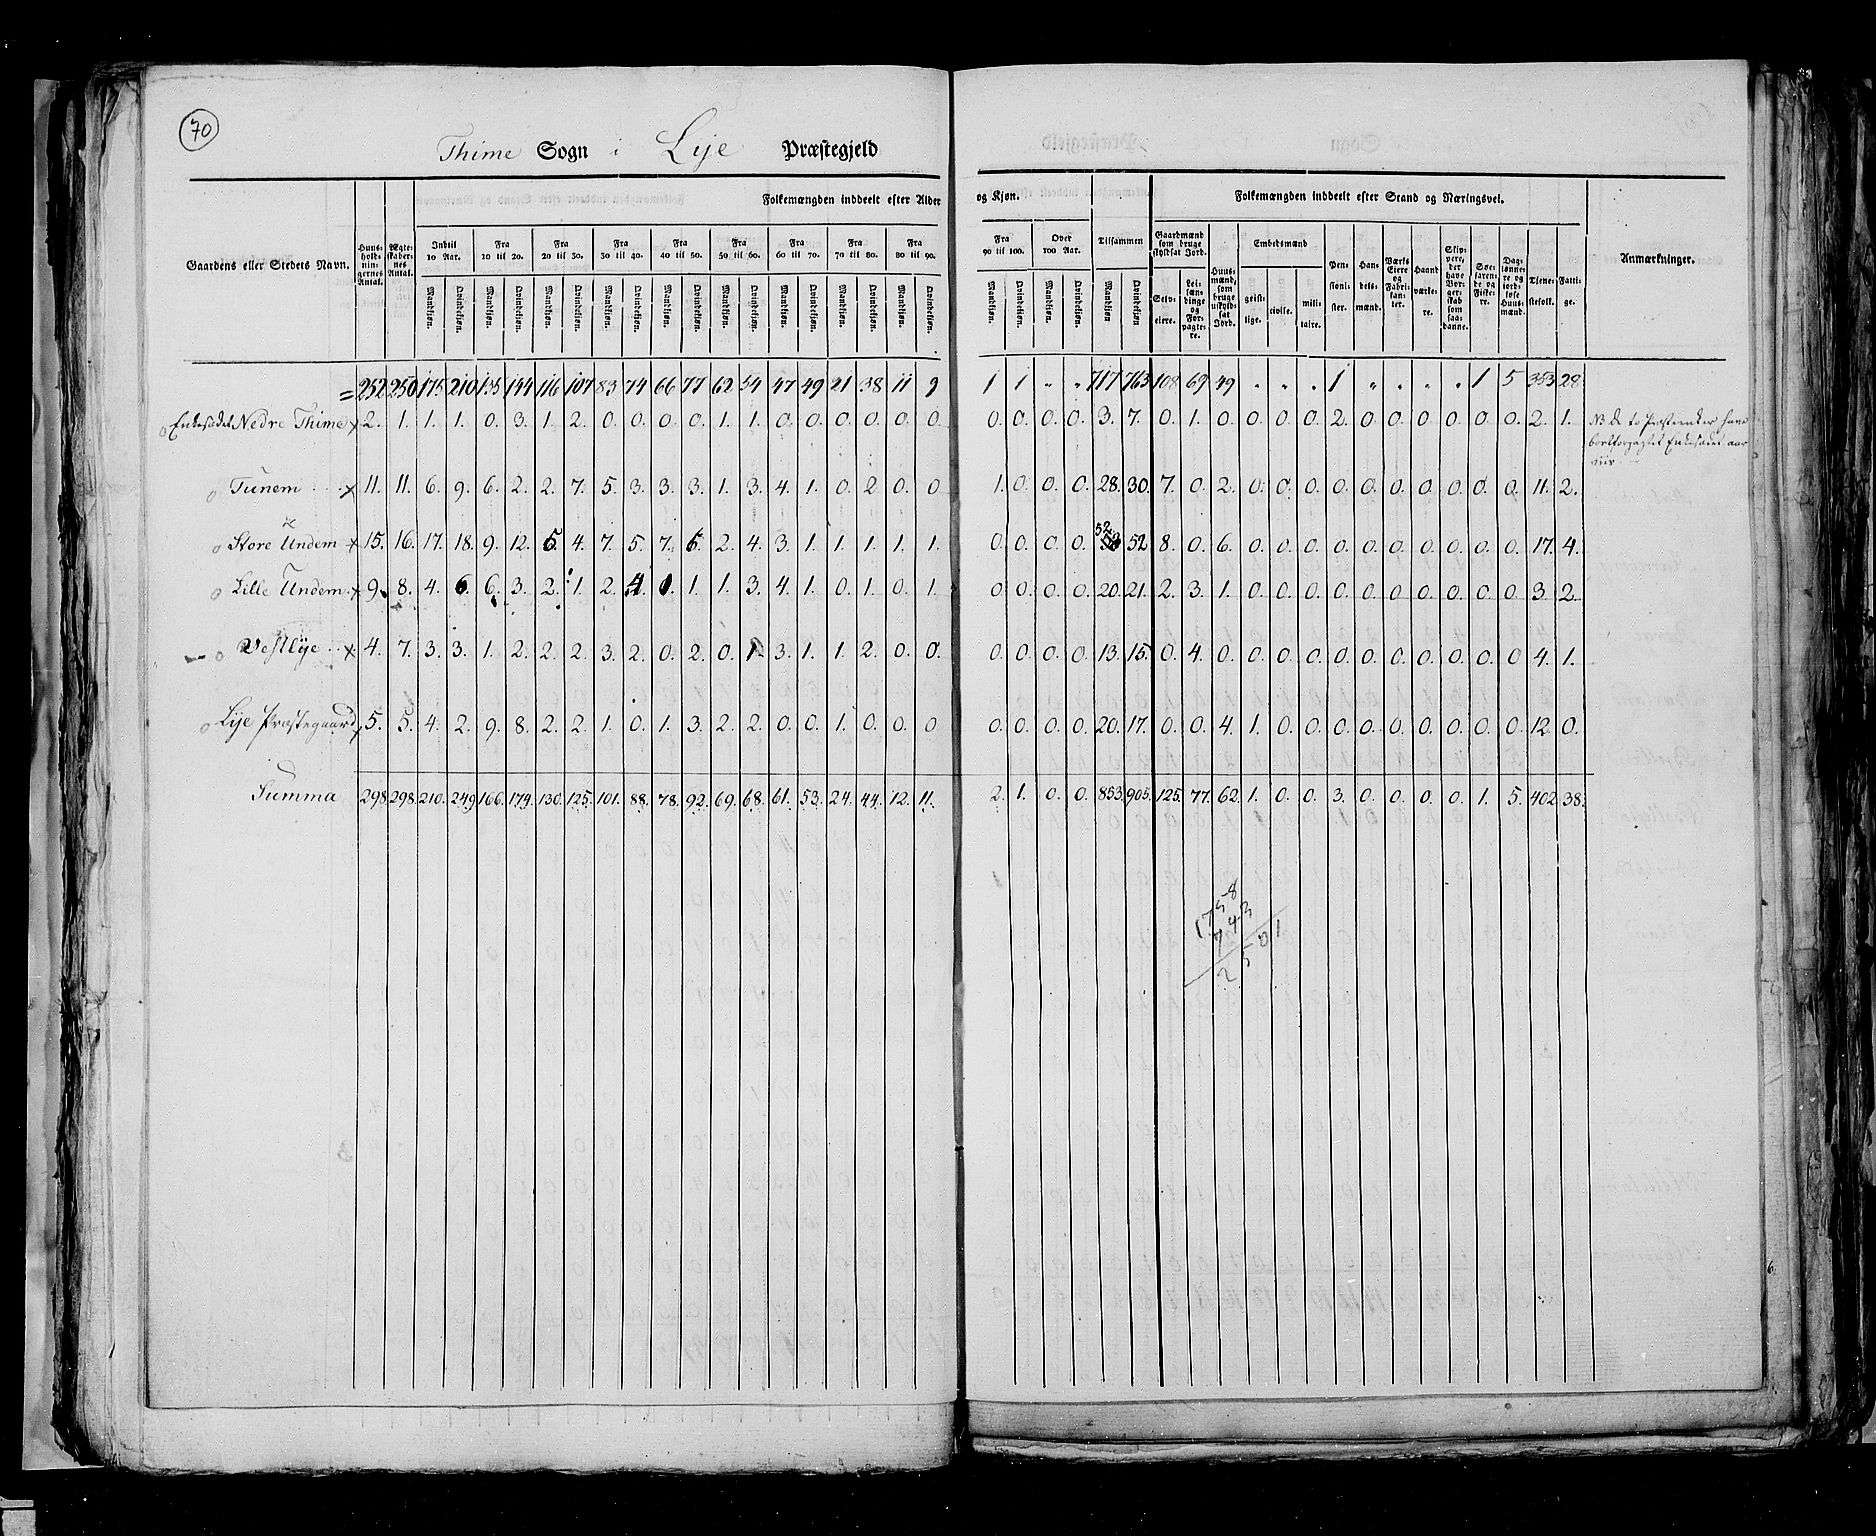 70
Thime Sogn i Lÿe Præstegjeld
Folkemængden inddeelt efter Alder og Kjøn. Folkemængden inddeelt efter Stand og Næringsvei.
Gaardens eller Stedets Navn. Huus-holdningernes Antal. Ægteskabernes Antal. Indtil 10 Aar. Fra 10 til 20. Fra 20 til 30. Fra 30 til 40. Fra 40 til 50. Fra 50 til 60. Fra 60 til 70. Fra 70 til 80. Fra 80 til 90. Fra 90 til 100. Over 100 Aar. Tilsammen Gaardmænd som bruge skyldsat Jord. Huusmænd, som bruge uskyldsat Jord. Embedsmænd Pensionister. Handelsmænd. Værks Eiere og Fabrikanter. Haandværkere. Skippere, der have Borgerskab som saadanne. Søefarende og Fiskere. Daglønnere og jordløse Huusmænd. Tjenestefolk. Fattige. Anmærkninger.
Mandkjøn. Qvindekjøn. Mandkjøn. Qvindekjøn. Mandkjøn. Qvindekjøn. Mandkjøn. Qvindekjøn. Mandkjøn. Qvindekjøn. Mandkjøn. Qvindekjøn. Mandkjøn. Qvindekjøn. Mandkjøn. Qvindekjøn. Mandkjøn. Qvindekjøn. Mandkjøn. Qvindekjøn. Mandkjøn. Qvindekjøn. Mandkjøn Qvindekjøn Selveiere. Leilændinge og Forpagtere. geistlige. civile. militaire.
= 252 250 175 210 135 144 116 107 83 74 66 77 62 54 47 49 21 38 11 9 1 1 " " 717 763 108 69 49 " " " 1 " " " " 1 5 353 28
Enkesædet Nedre Thime x 2. 1. 1. 1. 0. 3. 1. 2. 0. 0. 0. 0. 1. 1. 0. 0. 0. 0. 0. 0 0. 0. 0. 0. 3. 7. 0. 1. 0. 0. 0. 0. 2. 0. 0. 0. 0. 0. 0. 2. 1. NB de to Præsteenker have
bortforpagtet Enkesædet
Tunem x 11. 11. 6. 9. 6. 2. 2. 7. 5. 3. 3. 3. 1. 3. 4. 1. 0. 2 0. 0 1. 0. 0. 0. 28. 30. 7. 0. 2. 0. 0. 0. 0. 0. 0. 0. 0. 0. 0. 11. 2.
52
Store Undem x 15. 16. 17. 18. 9. 12. 5. 4. 7. 5. 7. 6. 2. 4. 3. 1. 1. 1. 1. 1. 0. 0. 0. 0. 52 8. 0. 6. 0. 0. 0. 0. 0. 0. 0. 0. 0. 0. 17. 4.
Lille Undem x 9. 8. 4. 6. 6. 3. 2. 1. 2. 4. 1. 1. 1. 3. 4. 1. 0. 1. 0. 1. 0. 0. 0. 0. 20. 21. 2. 3. 1. 0. 0. 0. 0. 0. 0. 0. 0. 0. 0. 3. 2.
Vestlÿe x 4. 7. 3. 3. 1. 2. 2. 2. 3. 2. 0. 2. 0. 1. 3. 1. 1. 2. 0. 0. 0. 0. 0. 0. 13. 15. 0. 4. 0. 0. 0. 0. 0. 0. 0. 0. 0. 0. 0 4. 1.
Lÿe Præstegaard x 5. 5. 4. 2. 9. 8. 2. 2. 1. 0. 1. 3. 2. 2. 0. 0. 1. 0. 0. 0 0. 0. 0. 0. 20. 17. 0. 0. 4. 1. 0. 0. 0. 0. 0. 0. 0. 0. 0. 12. 0.
Summa 298. 298. 210. 249. 166. 174. 130. 125. 101. 88. 78. 92. 69. 68. 61. 53. 24. 44. 12. 11. 2. 1. 0. 0. 853. 905. 125. 77. 62. 1. 0. 0. 3. 0. 0. 0. 0. 1. 5. 402. 38.
1758
743
2501